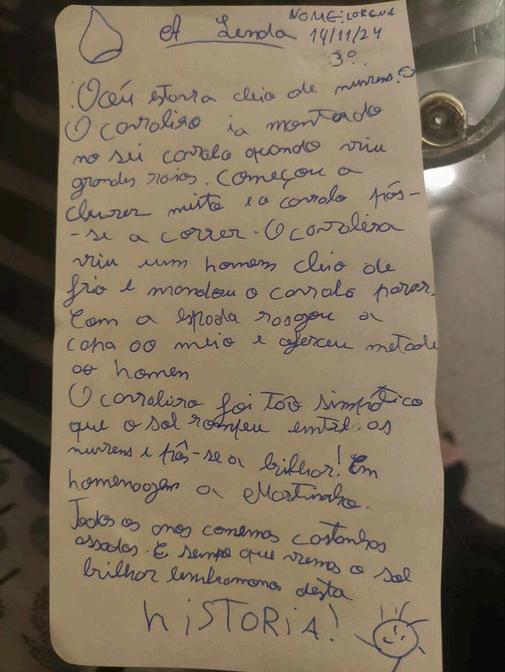 A Lenda
NOME: LORENA
14/11/24
3º
O céu estava cheio de nuvens.
O cavaleiro ia montado
no seu cavalo quando viu
grandes raios. Começou a
chuver muito e o cavalo pôs-
-se a correr. O cavaleiro
viu um homem cheio de
frio e mandou o cavalo parar.
Com a espada rasgou a
capa ao meio e ofereceu metade
ao homem
O cavaleiro foi tão simpático
que o sol rompeu entre as
nuvens e pôs-se a brilhar! Em
homenagem a Martinho.
Todos os anos comemos castanhas
assadas. E sempre que vemos o sol
brilhar lembramonos desta
hiSTORiA!